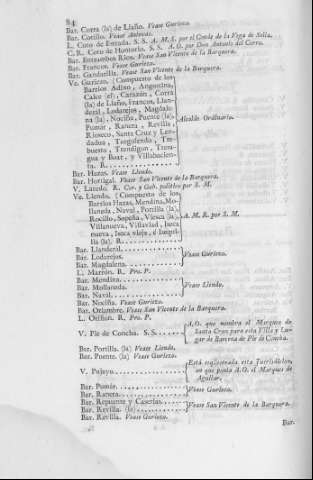 84
Bar. Corra (la) de Llaño. Vease Gurieza.
Bar. Cotillo. Vease
L. Coto de Estrada. S. S. A. M. S. por el Conde de la Vega de Sella.
C. R. Coto de Hontoria. S. S. A. O. por Don Antonio del Corro.
Bar. Entrambos Rios. Vease San Vicente de la Barquera.
Bar. Francos. Vease Gurieza.
Bar. Gandarilla. Vease San Vicente de la Barquera.
Ve. Gurieza. (Compuesto de los
Barrios Adino, Angostina,
Calce (el), Carazon, Corra
(la) de Llaño, Francos, Llan-
deral, Lodorejos, Magdale-
na (la), Nociña, Puente (la),
Pomar, Ranera, Revilla,
Rioseco, Santa Cruz y Len-
dadua, Torquienda, Tre-
buesto, Trendigun, Tresa-
gua y Boar, y Villabacien-
ta. R.
Alcalde Ordinario.
Bar. Hazas. Vease Liendo.
Bar. Hortigal. Vease San Vicente de la Barquera.
V. Laredo. R. Cor. y Gob. político por S. M.
Ve. Liendo. (Compuesto de los
Barrios Hazas, Mendina, Mo-
llaneda, Naval, Portilla (la),
Rocillo, Sopeña, Viesca (la),
Villanueva, Villaviad, Isoca
nueva, Isoca vieja, é Isequi-
lla (la). R.
A. M. R. por S. M.
Bar. Llanderal.
Bar. Lodorejos.
Bar. Magdalena.
Vease Gurieza.
L. Marrón. R. Po. P.
Bar. Mendina.
Bar. Mollaneda.
Bar. Naval.
Vease Liendo.
Bar. Nociña. Vease Gurieza.
Bar. Oriambre. Vease San Vicente de la Barquera.
L. Oriñon. R. Po. P.
V. Pie de Concha. S. S.
A. O. que nombra el Marques de
Santa Cruz para esta Villa y Lu-
gar de Barcena de Pie de Concha.
Bar. Portilla. (la) Vease Liendo.
Bar. Puente. (la) Vease Gurieza.
V. Pujayo.
Está
que ponia A. O. el Marques de
Aguilar.
Bar. Pomar.
Bar. Ranera.
Vease Gurieza.
Bar. Repuente y Caserias.
Bar. Revilla. (la)
Vease San Vicente de la Barquera.
Bar. Revilla. Vease Gurieza.
Bar.